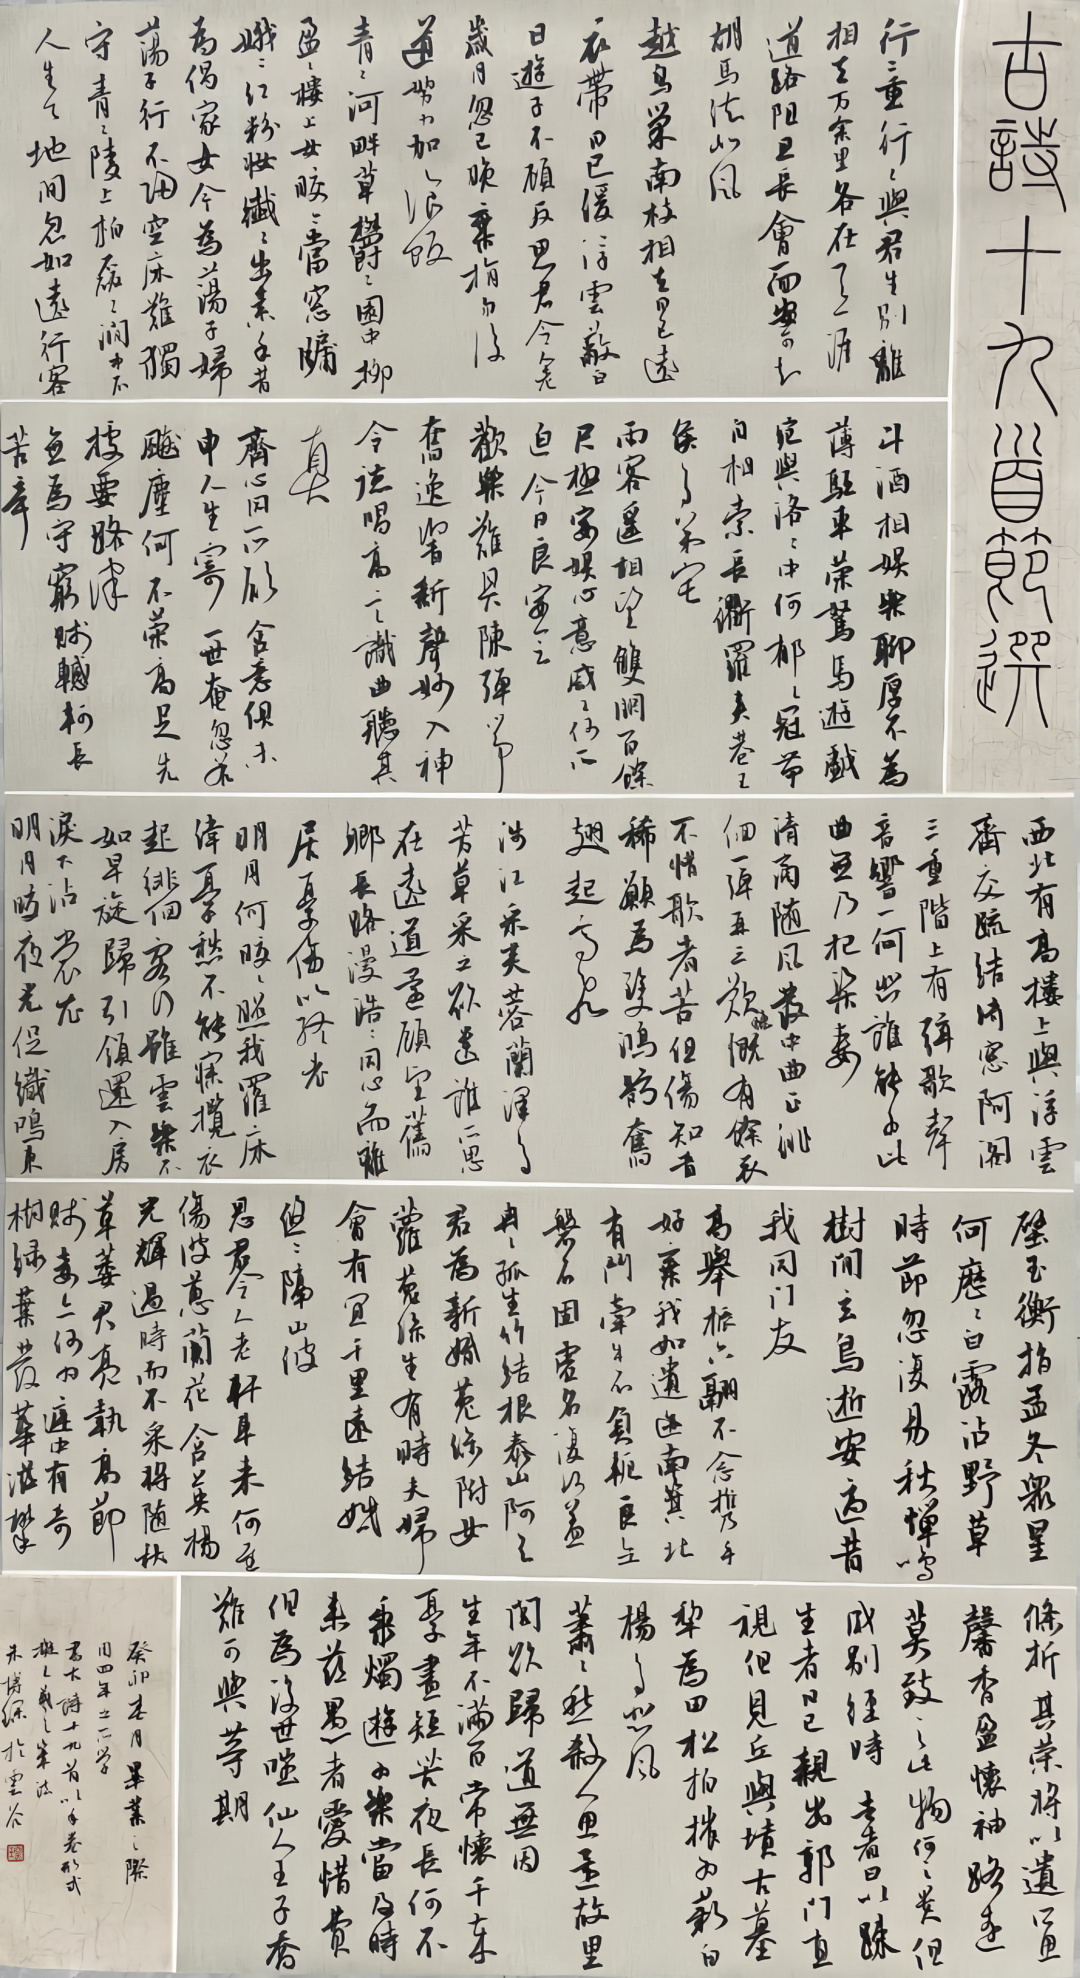 古詩十九首節選
行行重行行與君生別離
相去万余里各在天一涯
道路阻且長會面安可知
胡馬依北風
越鳥巢南枝相去日已遠
衣帶日已緩浮雲蔽白
日遊子不顧反思君令人老
歲月忽已晚棄捐勿復
道努力加餐飯
青青河畔草鬱鬱園中柳
盈盈樓上女皎皎當窓牖
娥娥紅粉妝纖纖出素手昔
為倡家女今為蕩子婦
蕩子行不歸空床難獨
守青青陵上柏磊磊澗中石
人生天地間忽如遠行客
斗酒相娛樂聊厚不為
薄驅車策駑馬遊戲
宛與洛洛中何郁郁冠帶
自相索長衢羅夾巷王
侯多第宅
兩宮遙相望雙闕百餘
尺極宴娛心意戚戚何所
迫今日良宴會
歡樂難具陳彈箏
奮逸響新聲妙入神
令德唱高言識曲聽其
真
齊心同所願含意俱未
申人生寄一世奄忽若
飇塵何不策高足先
據要路津
無為守窮賤轗軻長
苦辛
西北有高樓上與浮雲
齊交疏結綺窓阿閣
三重階上有弦歌聲
音響一何悲誰能為此
曲無乃杞梁妻
清商隨風發中曲正徘
徊一彈再三歎慷慨有餘哀
不惜歌者苦但傷知音
稀願為雙鴻鵠奮
翅起高飛
涉江采芙蓉蘭澤多
芳草采之欲遺誰所思
在遠道還顧望舊
鄉長路漫浩浩同心而離
居憂傷以終老
明月何皎皎照我羅床
緯憂愁不能寐攬衣
起徘徊客行雖雲樂不
如早旋歸引領還入房
淚下沾裳衣
明月皎夜光促織鳴東
壁玉衡指孟冬衆星
何歷歷白露沾野草
時節忽復易秋蟬鳴
樹間玄鳥逝安適昔
我同门友
高舉振六翮不念攜手
好棄我如遺跡南箕北
有斗牽牛不負軛良無
磐石固虛名復何益
冉冉孤生竹結根泰山阿與
君為新婚菟絲附女
蘿菟絲生有時夫婦
會有宜千里遠結婚
悠悠隔山陂
思君令人老軒車來何遲
傷彼蕙蘭花含英揚
光輝過時而不采將隨秋
草萎君亮執高節
賤妾亦何為庭中有奇
樹綠葉發華滋攀
條折其榮將以遺所思
馨香盈懷袖路遠
莫致之此物何足貴但
感別經時去者日以疎
生者日已親出郭门直
視但見丘與墳古墓
犁為田松柏摧為薪白
楊多悲風
蕭蕭愁殺人思還故里
閭欲歸道無因
生年不滿百常懷千歲
憂晝短苦夜長何不
秉燭遊為樂當及時
來茲愚者愛惜費
但為後世嗤仙人王子喬
難可與等期
癸卯年月畢業之際
用四年之所學
書古詩十九首以手卷形式
擬之筆法
朱博深於雲谷